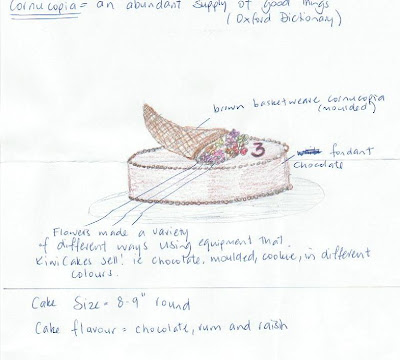 Cornucopia = an abundant supply of good things
(Oxford Dictionary)
brown basketweave cornucopia
(moulded)
3
fondant
chocolate
Flowers made a variety
of different ways using equipment that
KiwiCakes sell! ie chocolate, moulded, cookie, in different
colours.
Cake Size = 8-9" round
Cake flavour = chocolate, rum and raisin